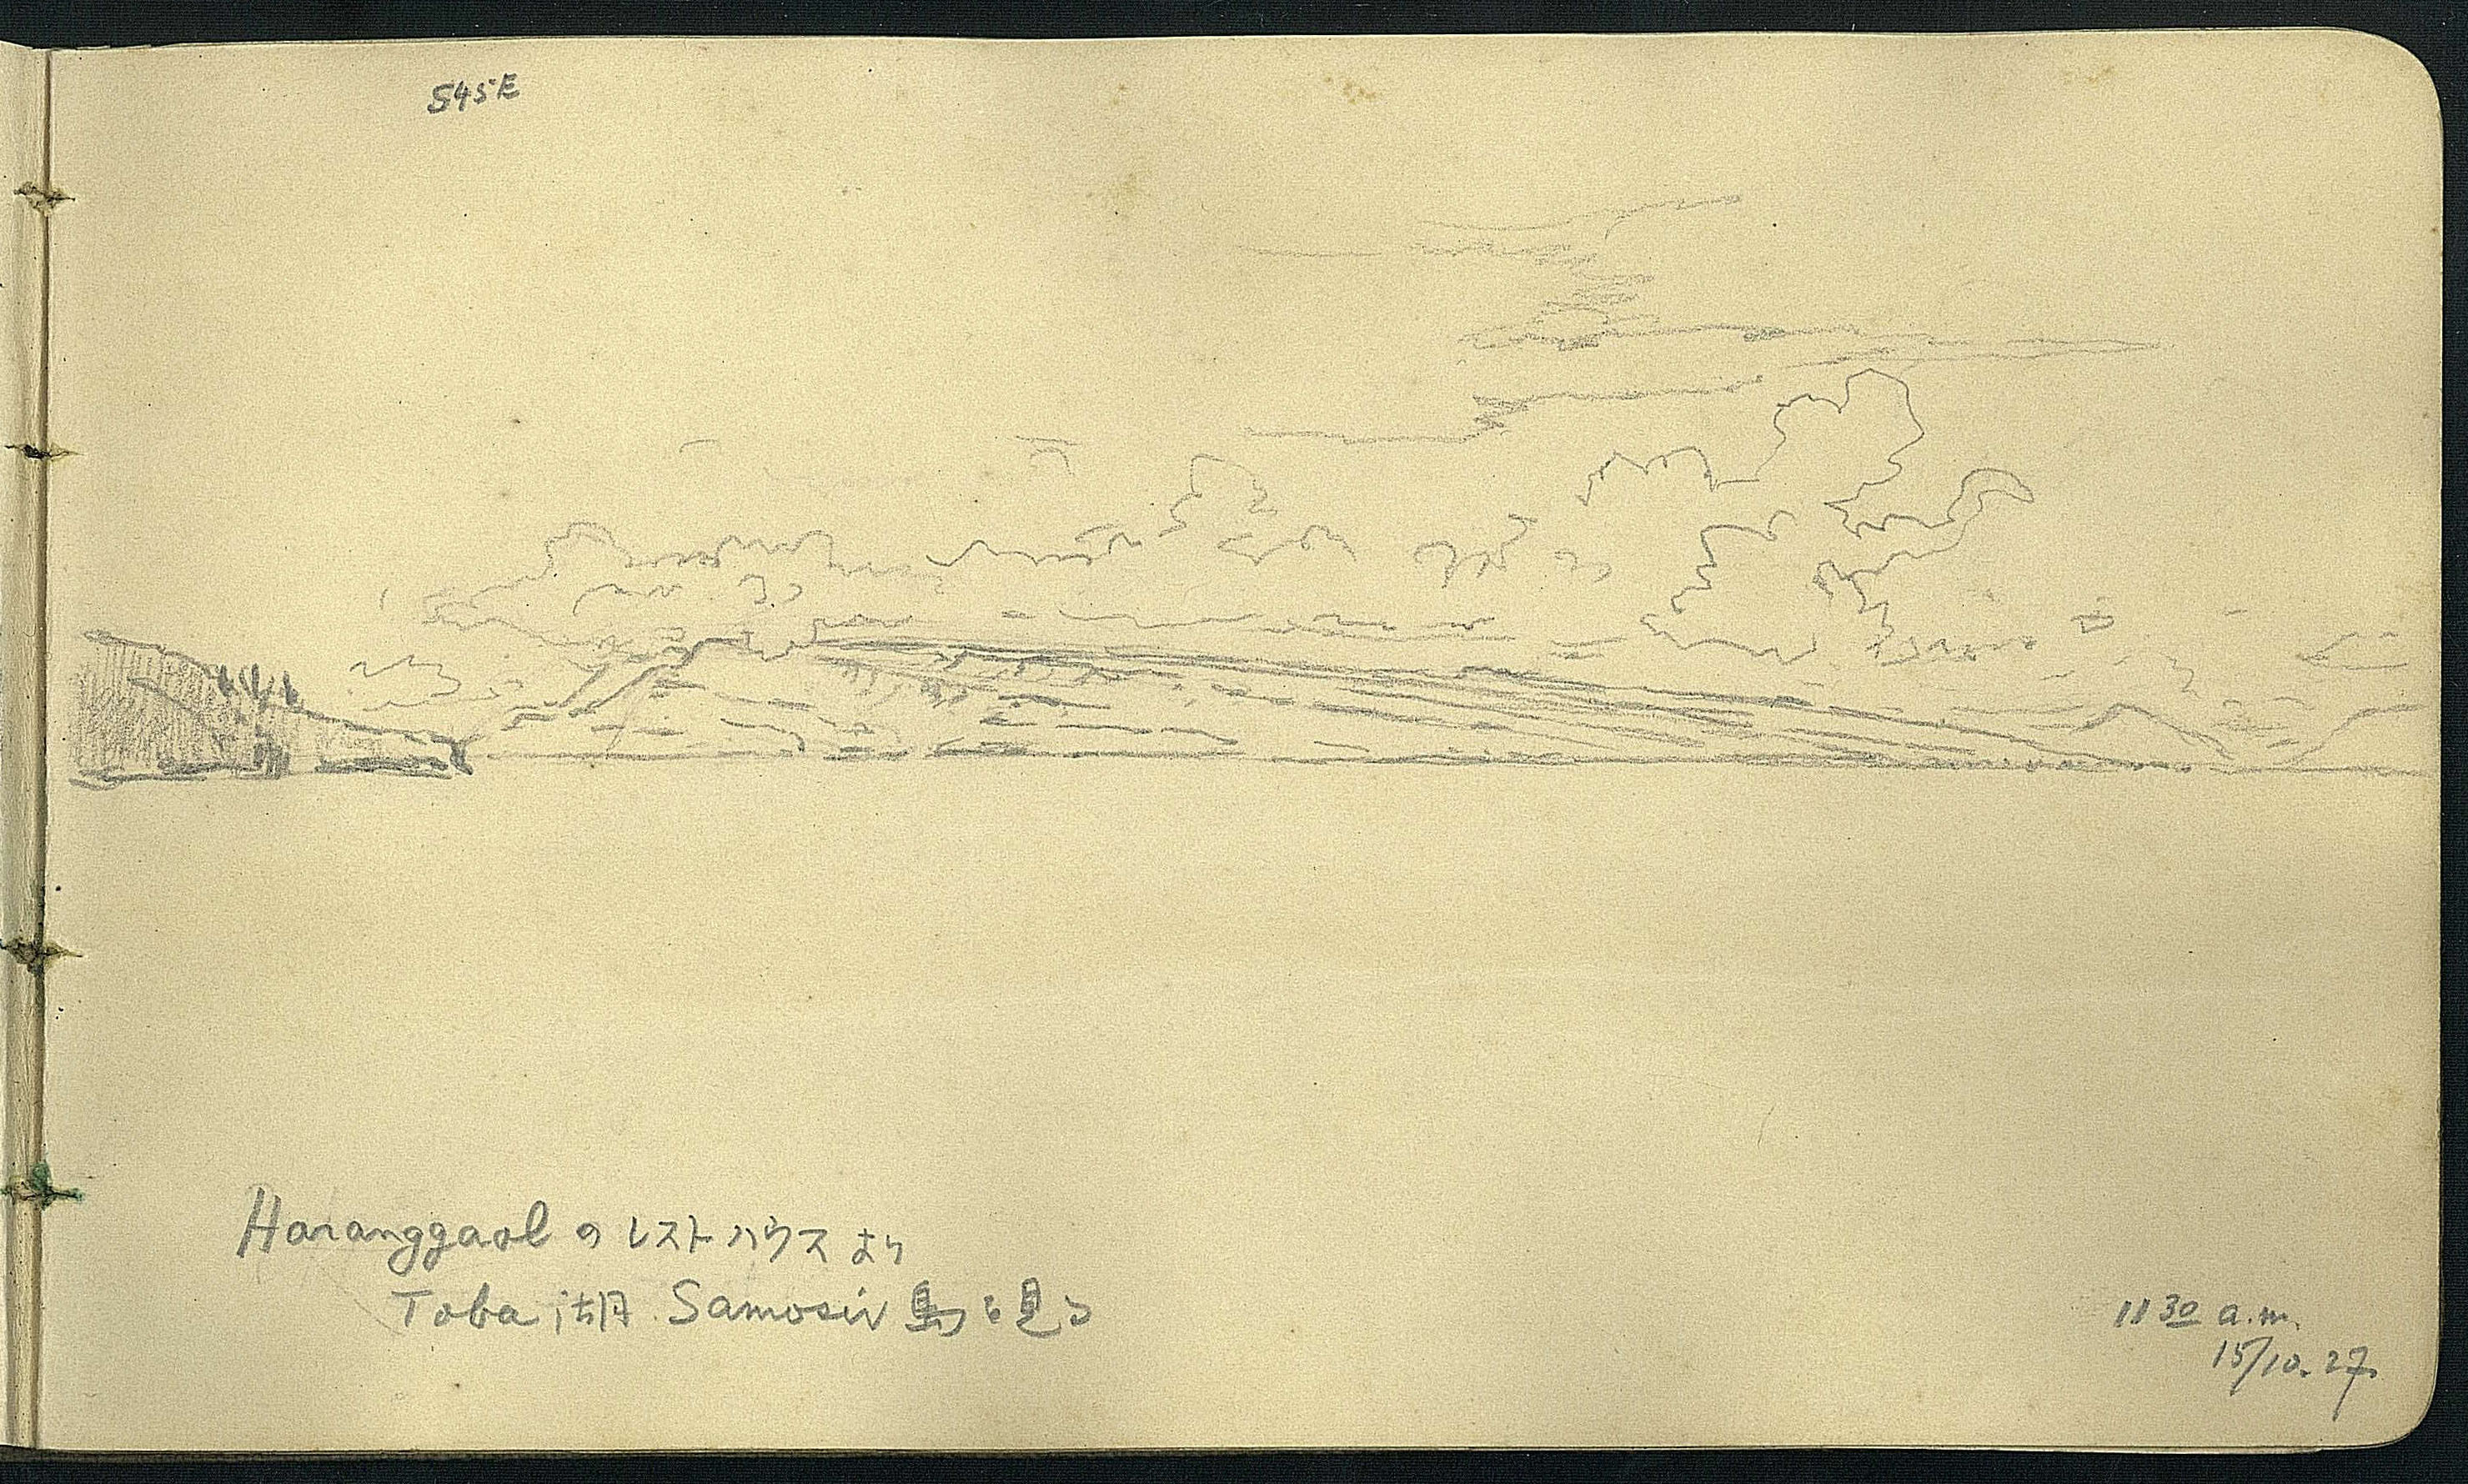 S45E
Haranggaol の レストハウス より
Toba 湖 Samosir 島を見る
11 30 a.m.
15/10.27.